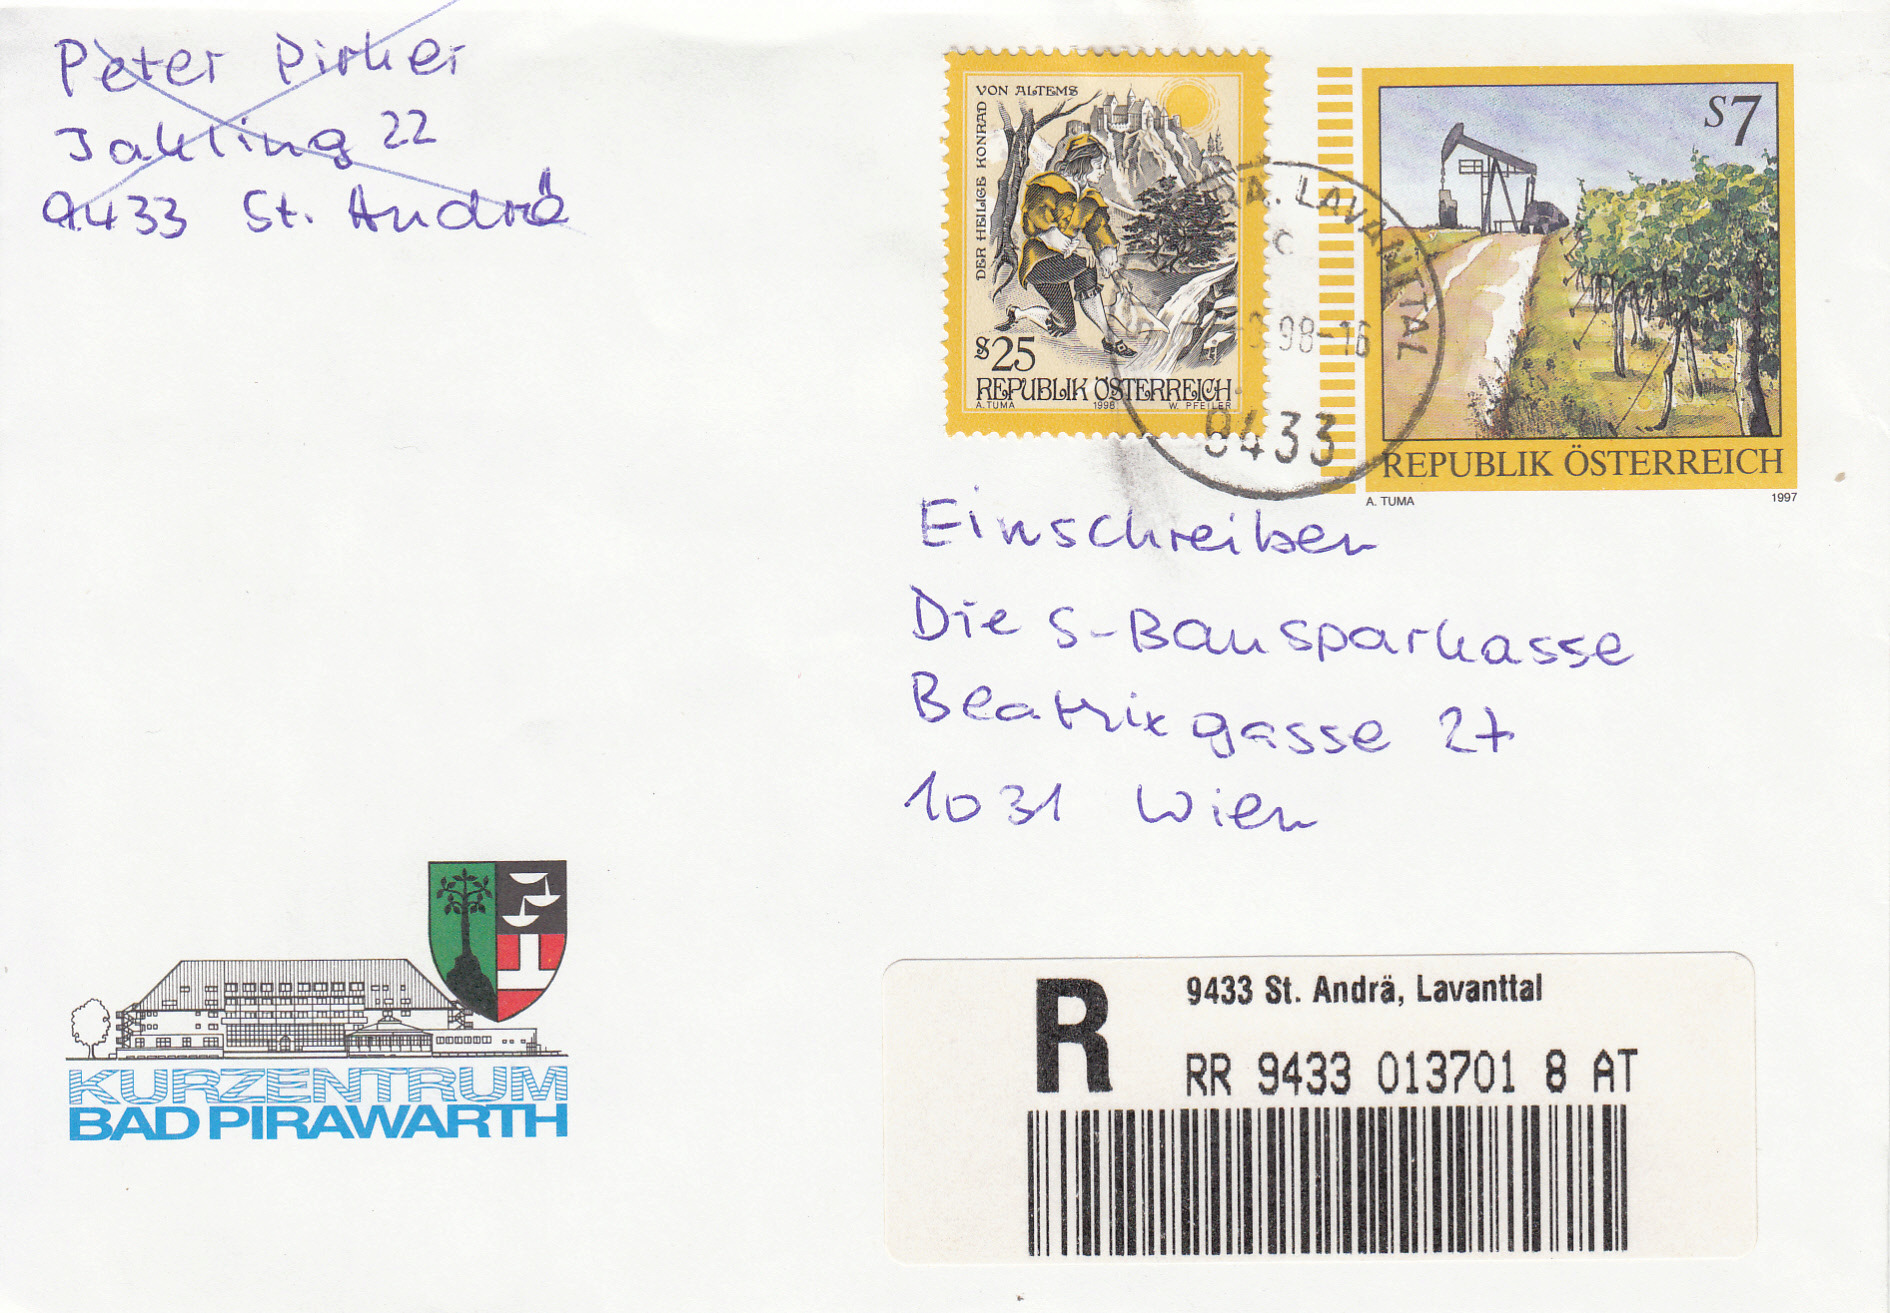 Peter Pirker
Jakling 22
9433 St. Andrä
VON ALTEMS
DER HEILIGE KONRAD
S25
REPUBLIK ÖSTERREICH
A. TUMA 1998 W. PFEILER
S7
REPUBLIK ÖSTERREICH
A. TUMA 1997
RÄ. LAVANTTAL
c
98-16
9433
Einschreiben
Die S-Bausparkasse
Beatrixgasse 27
1031 Wien
KURZENTRUM
BAD PIRAWARTH
R
9433 St. Andrä, Lavanttal
RR 9433 013701 8 AT